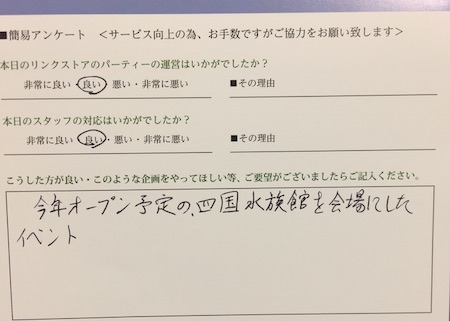 ■簡易アンケート　<サービス向上の為、お手数ですがご協力をお願い致します>
本日のリンクストアのパーティーの運営はいかがでしたか？
非常に良い・良い・悪い・非常に悪い　■その理由
本日のスタッフの対応はいかがでしたか？
非常に良い・良い・悪い・非常に悪い　■その理由
こうした方が良い・このような企画をやってほしい等、ご要望がございましたらご記入ください。
今年オープン予定の、四国水族館を会場にした
イベント